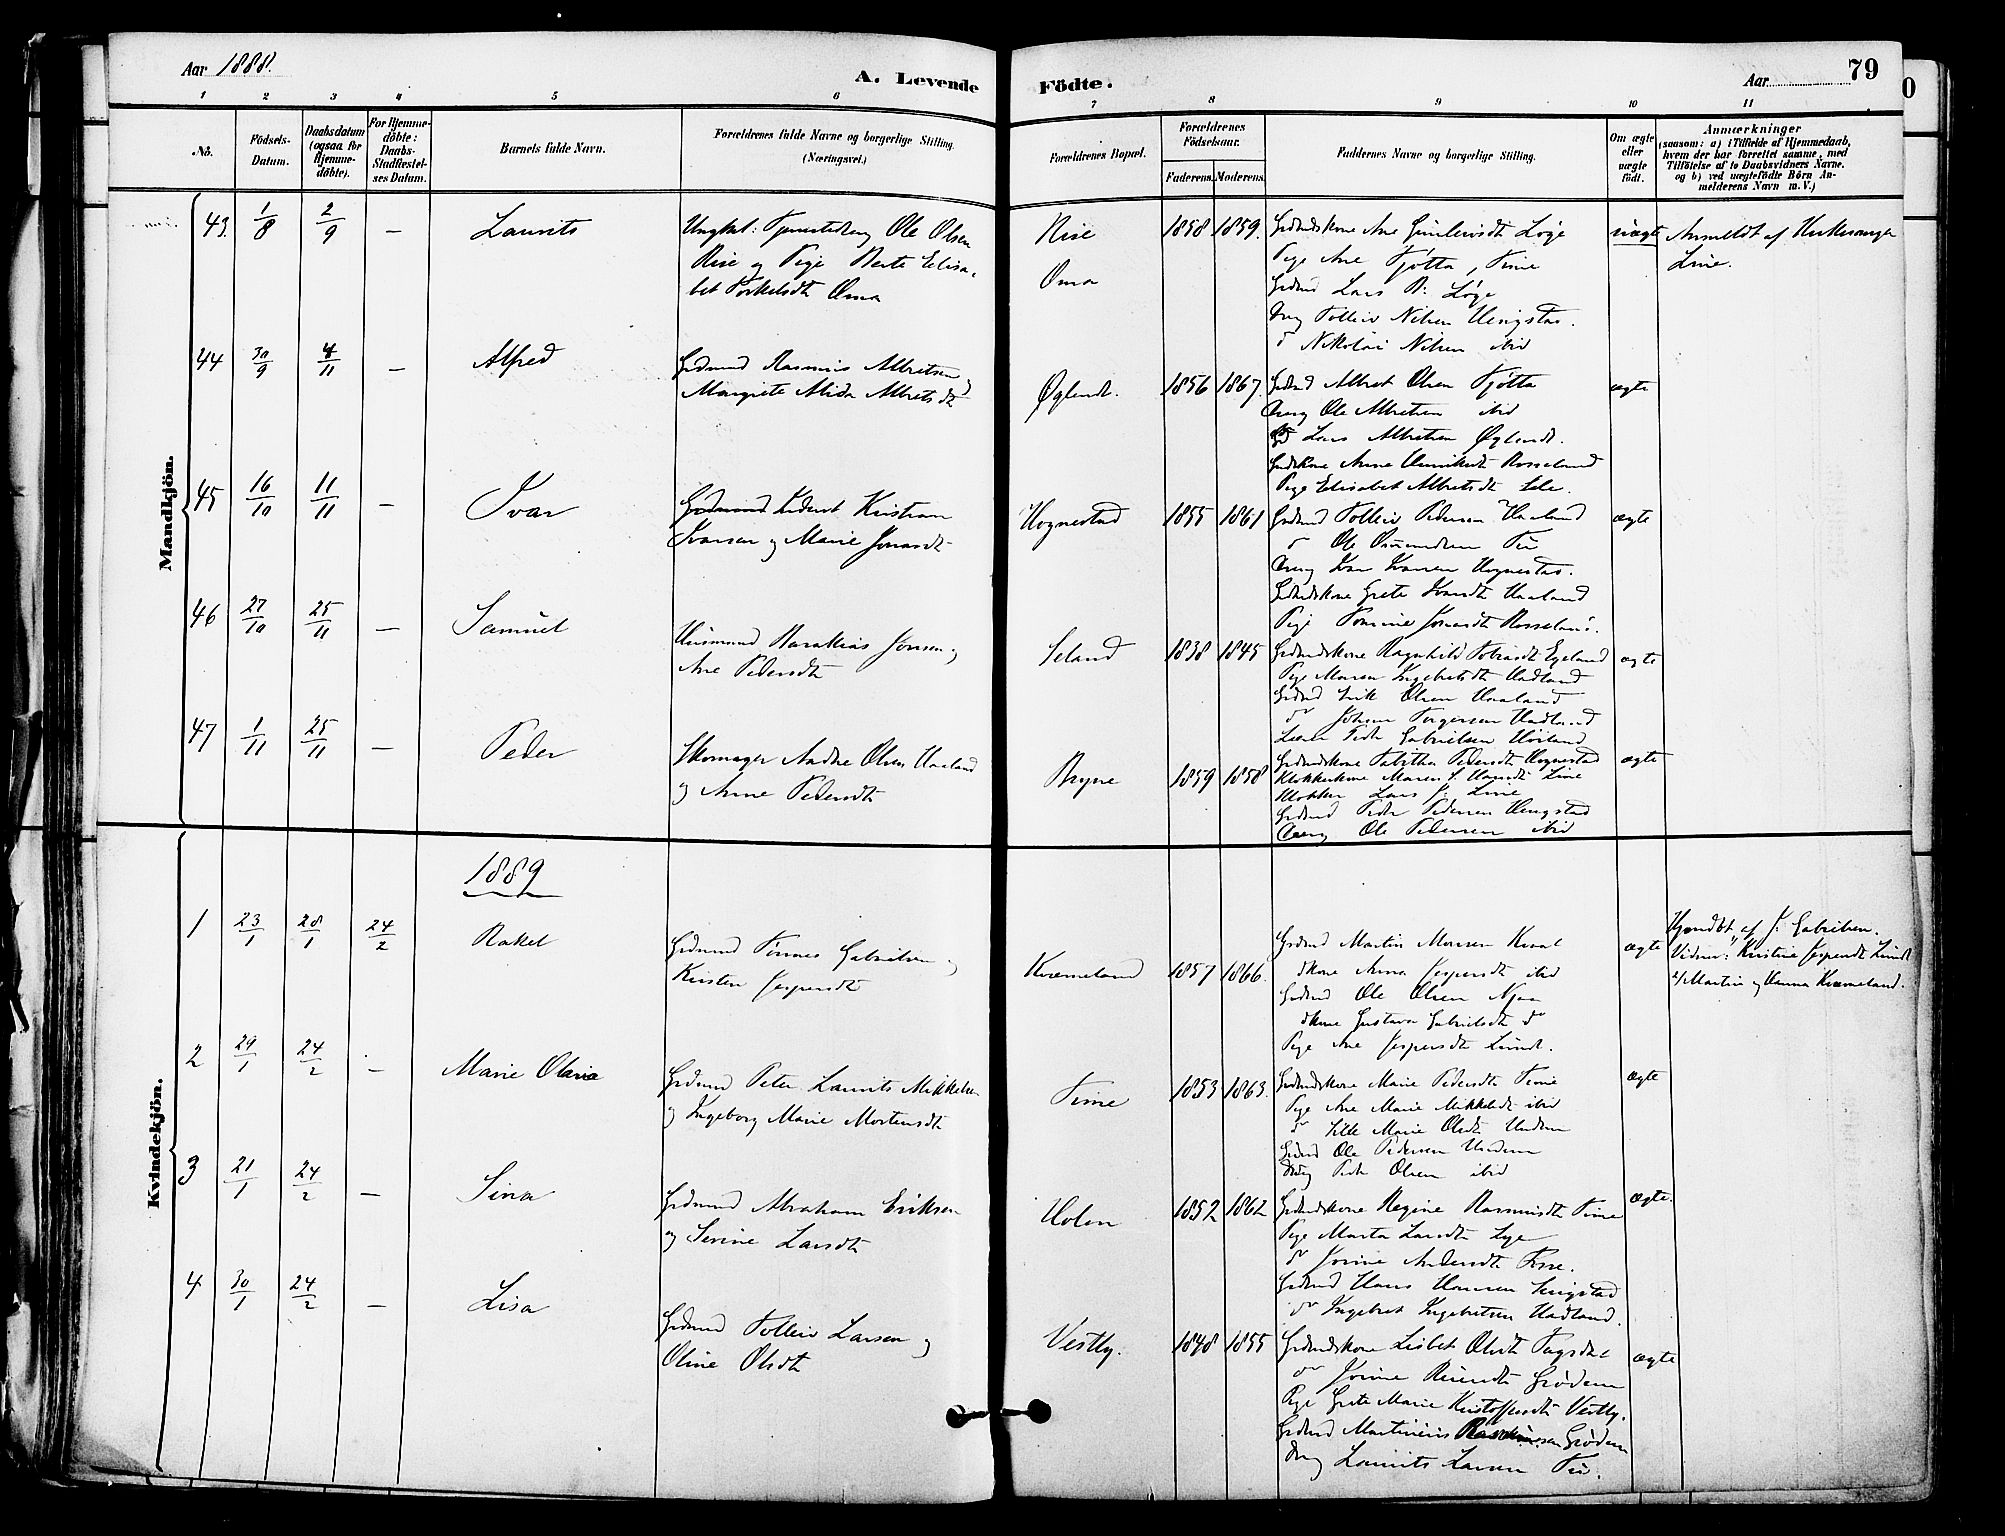 Aar 1888.
A. Levende
Födte.
Aar
79
1 2 3 4 5 6 7 8 9 10 11
No.
Födsels-
Datum.
Daabsdatum
(ogsaa for
Hjemme-
döbte).
For Hjemme-
döbte:
Daabs-
Stadfæstel-
ses Datum.
Barnets fulde Navn.
Forældrenes fulde Navne og borgerlige Stilling.
(Næringsvei.)
Forældrenes Bopæl.
Forældrenes
Födselsaar.
Faderens. Moderens.
Faddernes Navne og borgerlige Stilling.
Om ægte
eller
uægte
födt.
Anmærkninger
(saasom: a) i Tilfælde af Hjemmedaab,
hvem der har forrettet samme, med
Tilföielse af to Daabsvidners Navne,
og b) ved uægtefödte Börn An-
melderens Navn m. V.)
Mandkjön.
43. 1/8 2/9 — Laurits
Ungkal: Ole Olsen
Rise og Pige Berte Elisa-
bet Torkelsdt Oma
Rise
Oma
1858 1859.
Grdmdskone Ane Løge
Pige Ane Tjøtta, Time
Grdmd Lars B: Løge
Ung Tollеiv Nilsen Hengstad.
do Nikolai Nilsen ibid
uægte
Anmeldt af Kirkesanger
Line.
44 30/9 4/11 — Alfred
Grdmand Rasmus Albretsen
Margrete Alida Albretsdt
Øglendt. 1856 1867.
Grdmd Albret Olsen Tjøtta
Ung Ole Albretsen ibid
Lars Albretsen Øglendt.
Grdskone Anne Rosseland
Pige Elisabet Albretsdt Lele.
ægte
45 16/10 11/11 — Ivar
Grdmand Kristian
Ivarsen og Marie Jonasdt
Hognestad 1855 1861
Grdmd Tolleiv Pedersen Haaland
do Ole Tu
Ung Ivar Ivarsen Hognestad.
Grdmdskone Grete Haaland
Pige Tomine Jonasdt Rosseland.
ægte
46 27/10 25/11 — Samuel
Husmand Barakias Jonsen og
Ane Pedersdt
Seland 1838 1845
Grdmdskone Ragnhild Tobiasdt Egeland
Pige Maren Ingebretsdt Hadland
Grdmd Erik Olsen Haaland
do Johan Torgersen Hadland
Peder Gabrielsen Høiland
ægte
47 1/11 25/11 — Peder
Skomager Andre Olsen Haaland
og Anne Pedersdt
Bryne 1859 1858
Grdmdskone Tabitha Pedersdt Hognestad
Klokkerkone Maren Line
Klokker Lars Line
Grdmd Peder Pedersen Hengstad
Ung Ole Pedersen ibid
ægte
Kvindekjön.
1889
1 23/1 28/1 24/2 Rakel
Grdmand Tønnes Gabrielsen og
Kirsten Jespersdt
Kverneland 1857 1866.
Grdmd Martin Monsen Kvaal
dkone Anna Jespersdt ibid
Grdmd Ole Olsen Njaa
dkone Gustava Gabrielsdt do
Pige Ane Jespersdt Lunde.
ægte
Hjmdbt af Gabrielsen.
Vidner: Kristine Jespersdt Lunde
Martin og Hanna Kverneland.
2 29/1 24/2 — Marie Olaria
Grdmand Peter Laurits Mikkelsen
og Ingeborg Marie Mortensdt
Time 1853 1863.
Grdmdskone Marie Pedersdt Time
Pige Ane Marie Mikkelsdt ibid
do Marie Olsdt Undem
Grdmd Ole Pedersen Undem
Ung Peder Olsen ibid
ægte
3 21/1 24/2 — Sina
Grdmand Abraham Eriksen
og Serine Larsdt
Holen 1852 1862
Grdmdskone Regine Rasmusdt Time
Pige Marta Larsdt Lye
do Jorine Andersdt Rise.
Grdmd Hans Hansen
do Ingebret Ingebretsen Hadland.
ægte.
4 30/1 24/2 — Lisa
Grdmand Tolleiv Larsen og
Oline Olsdt
Vestly. 1848 1855
Grdmdskone Lisbet Olsdt
do Jorine Grødem
Pige Grete Marie Kristoffersdt Vestly.
Grdmd Martinius Rasmussen Grødem
Ung Laurits Larsen Tu.
ægte